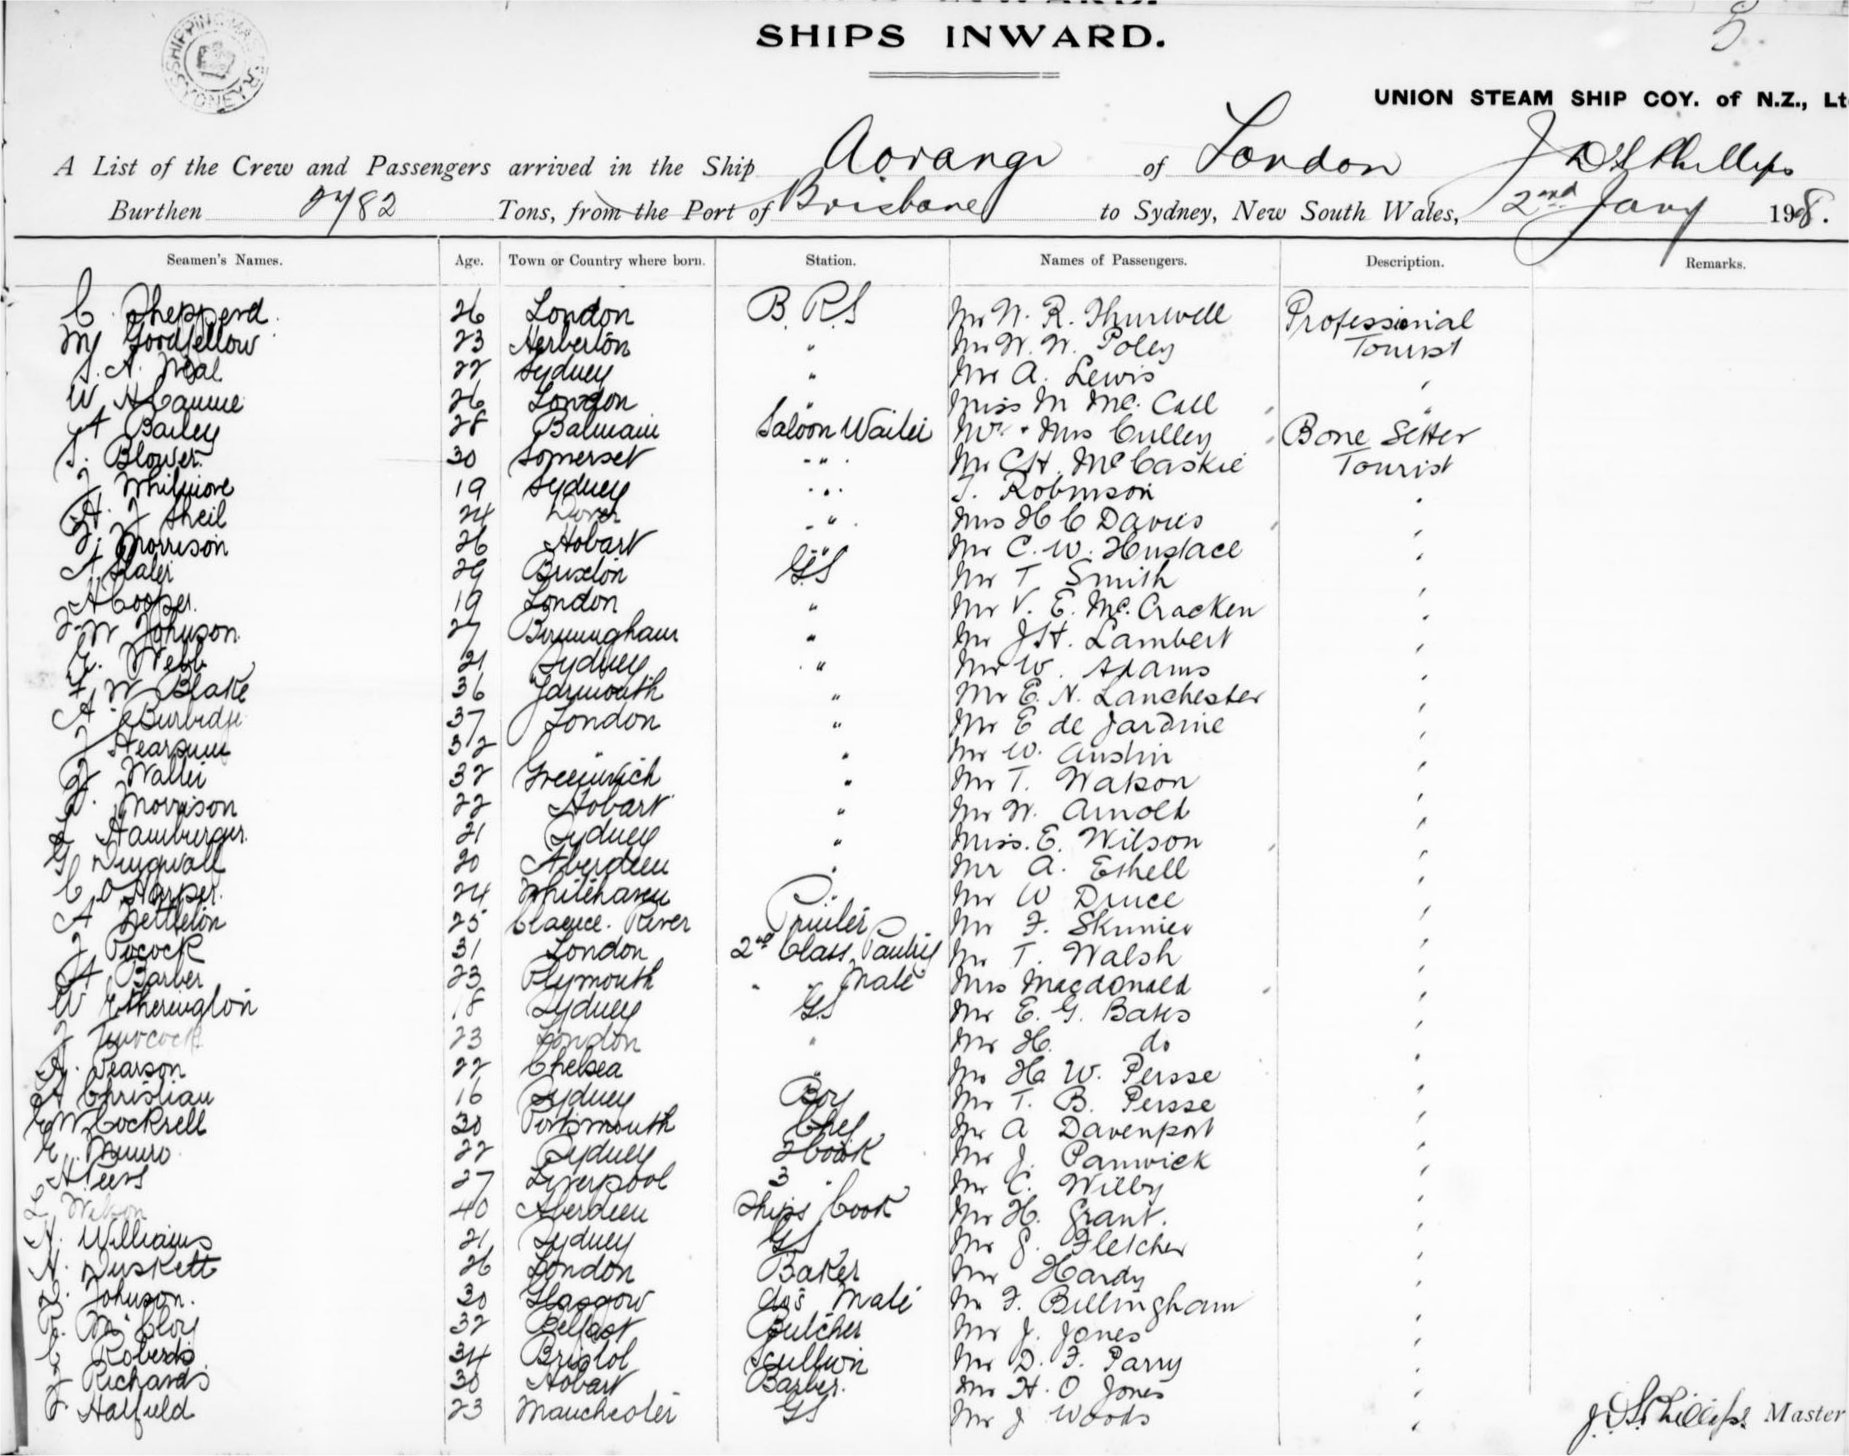 SHIPS INWARD.
SHIPPING MASTER SYDNEY
UNION STEAM SHIP COY. of N.Z., Lt
A List of the Crew and Passengers arrived in the Ship Aorangi of London J D S Phillips
Burthen 2782 Tons, from the Port of Brisbane to Sydney, New South Wales, 2nd Jany 198.
Seamen's Names. Age. Town or Country where born. Station. Names of Passengers. Description. Remarks.
C. Shepperd 26 London B. R. S Mr N. R. Thurwell Professional
Goodfellow 23 Herberton " Mr W. W. Poley Tourist
S. A. Neal 22 Sydney " Mr A. Lewis "
W 26 London " Miss M Mc. Call "
A Bailey 28 Balmain Saloon Waiter Mr & Mrs Culley Bone Setter
S. Blower 30 Somerset " Mr C H. McCaskie Tourist
J Whitmore 19 Sydney " T. Robinson "
A. J Sheil 24 Dover " Mrs H C Davies "
J. Morrison 26 Hobart " Mr C. W. Hustace "
A Slater 29 Brixton G.S Mr T Smith "
A Cooper. 19 London " Mr V. E. Mc. Cracken "
J. W Johnson 27 Birmingham " Mr J H. Lambert "
G. Webb 21 Sydney " Mr W. Adams "
F. W Blake 36 Yarmouth " Mr E. N. Lanchester "
A Burbidge 37 London " Mr E de Jardine "
J 32 " " Mr W. Austin "
J Waller 32 Greenwich " Mr T. Watson "
D. Morrison 22 Hobart " Mr W. Arnold "
L Hamburger. 21 Sydney " Miss. E. Wilson "
G Dingwall 20 Aberdeen " Mr A. Ethell "
C O Harper. 24 Whitehaven " Mr W Druce "
A Nettleton 25 Clarence. River Printer Mr F. Skinner "
J Pocock 31 London 2nd Class Pantry Mr T. Walsh "
A Barber 23 Plymouth " " Mate Mrs Macdonald "
W Etherington 18 Sydney G.S Mr E. G. Bates "
J 23 London " Mr H. do "
A. Pearson 22 Chelsea " Mr H. W. Persse "
A Christian 16 Sydney Boy Mr T. B. Persse "
W Cockrell 30 Portsmouth Chef Mr A Davenport "
G. Munro 22 Sydney 2 Cook Mr J. Panwick "
A Peers 27 Liverpool 3 " Mr C. Wilby "
L Wilson 40 Aberdeen Ships Cook Mr H. Grant. "
A. Williams 21 Sydney GS Mr G. Fletcher "
A. Duskett 26 London Baker Mr Hardy "
D. Johnson. 30 Glasgow do's Mate Mr F. Billingham "
R. McCloy 32 Belfast Butcher Mr J. Jones "
C Roberts 34 Bristol Scullion Mr D. F. Parry "
J Richards 30 Hobart Barber. Mr H. O Jones "
F Hatfield 23 Manchester GS Mr J Woods "
J. D. S. Phillips. Master